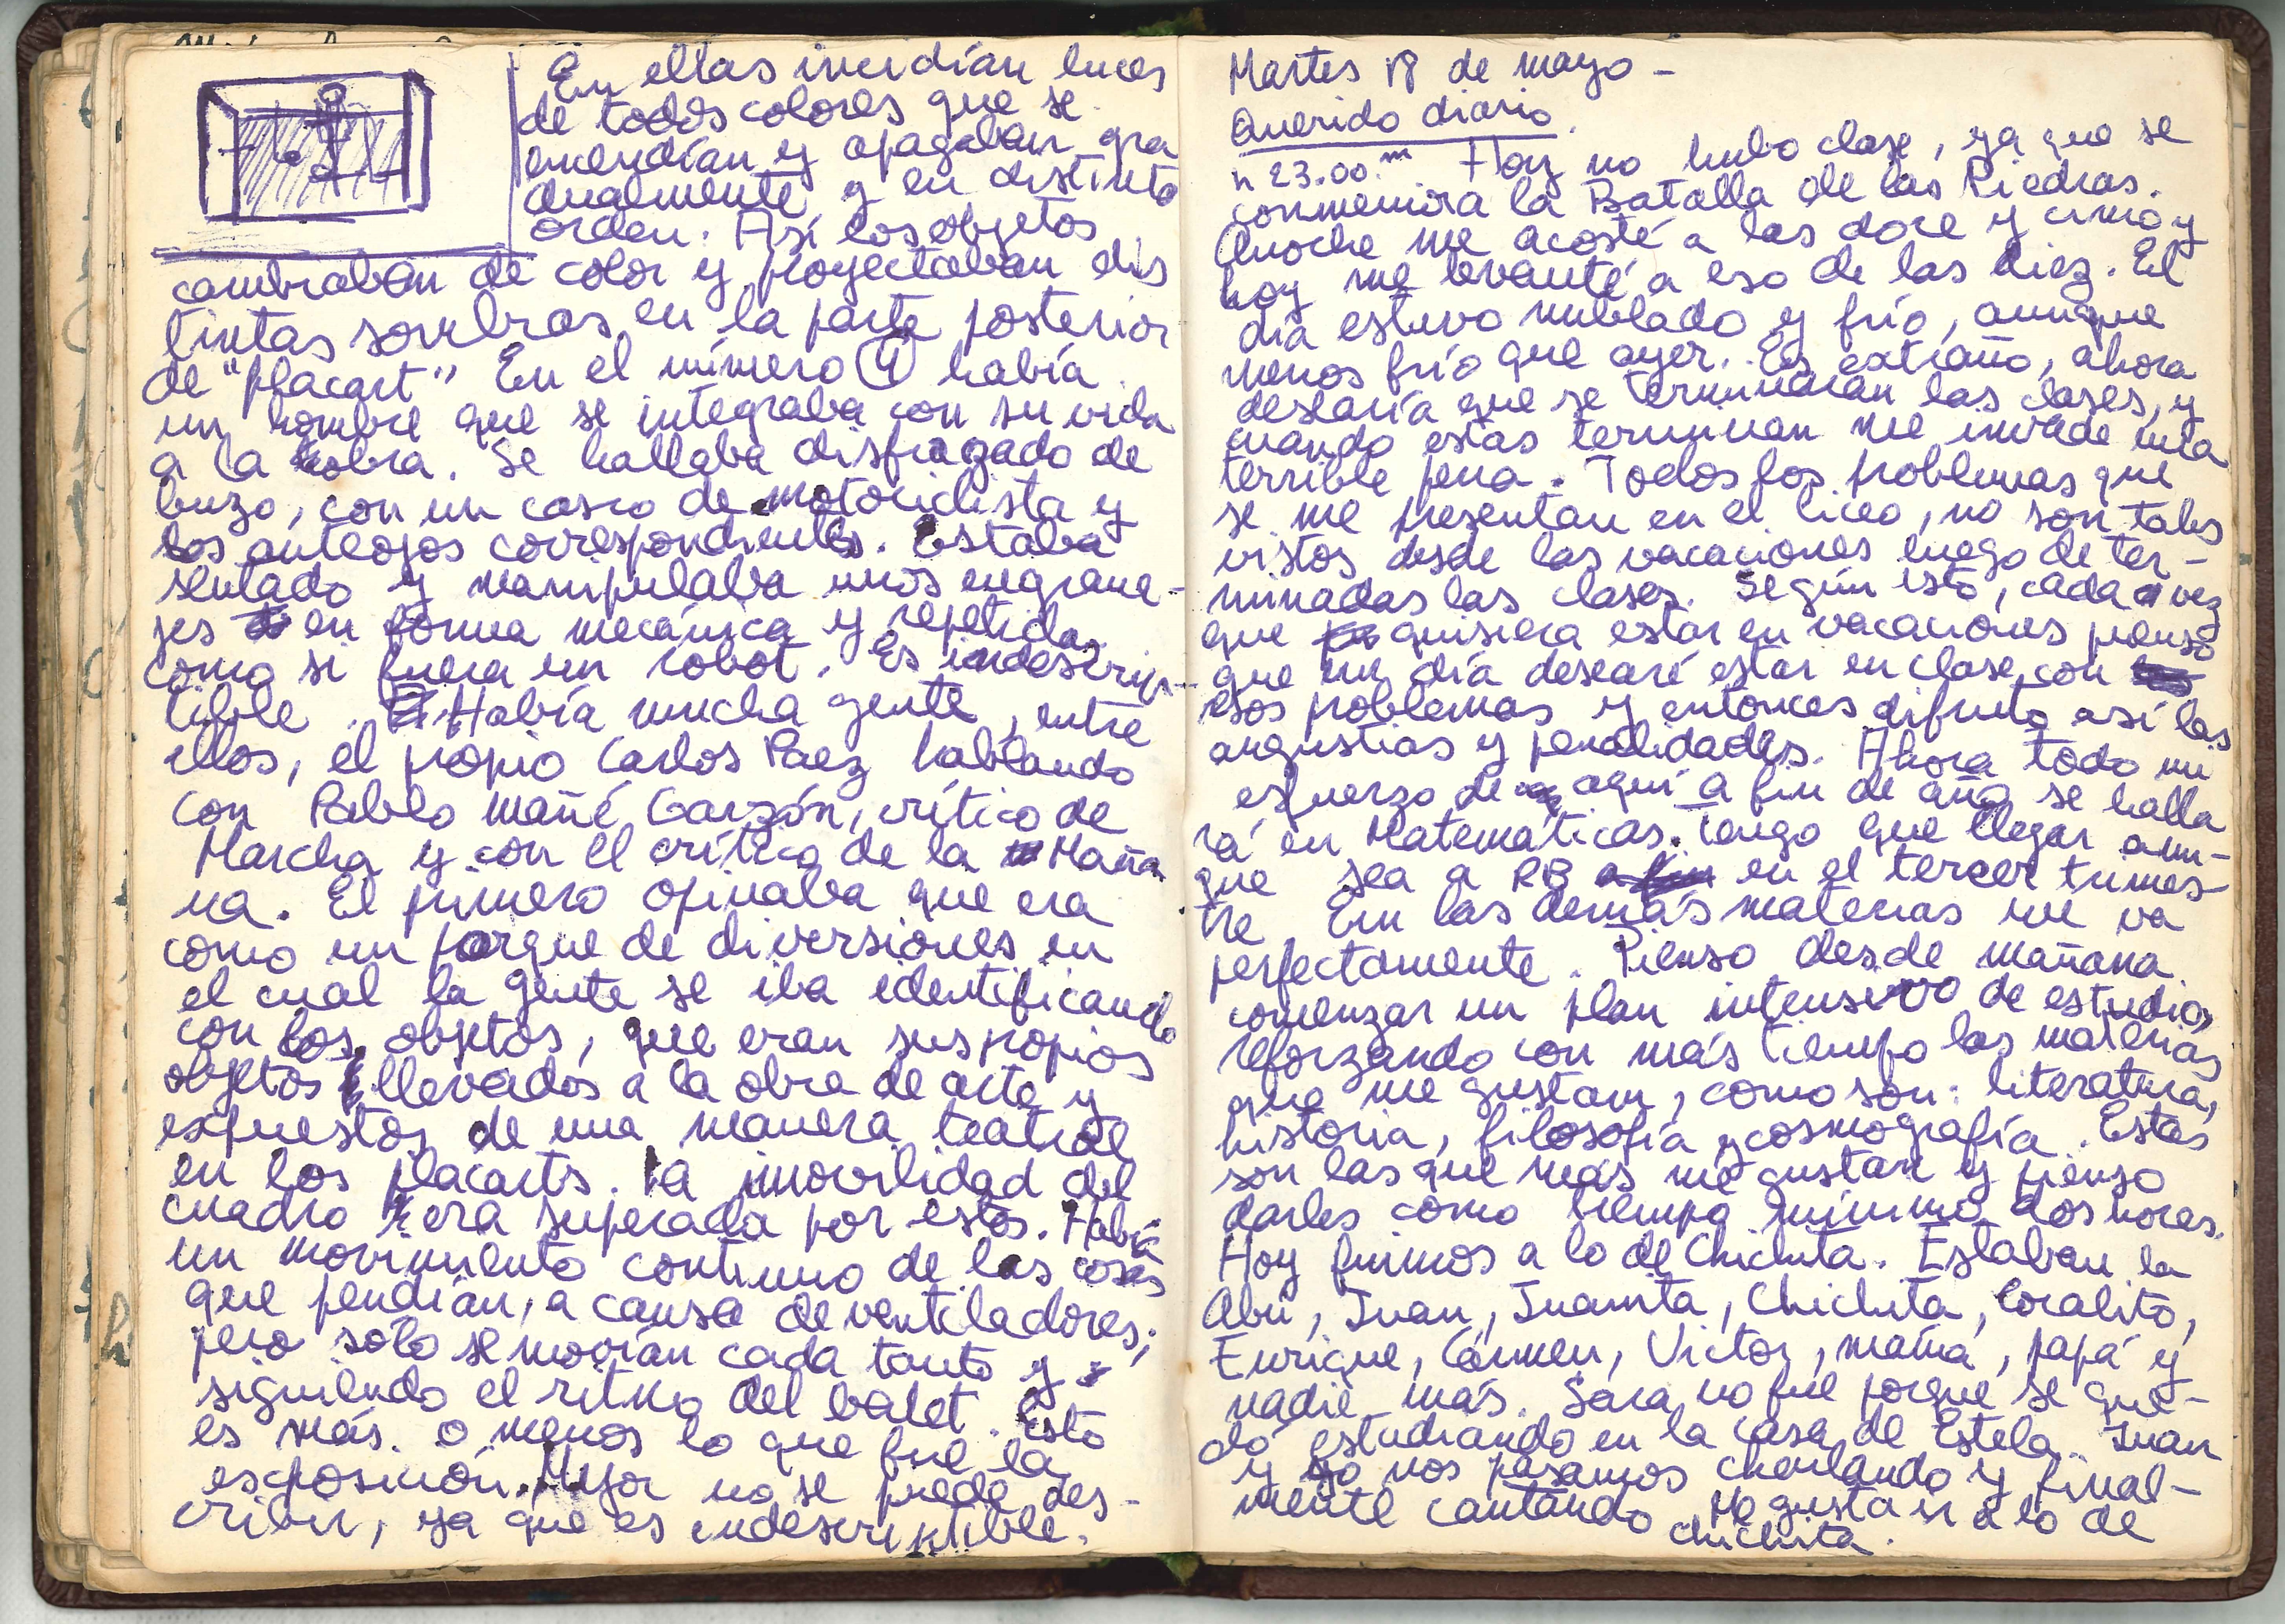 En ellas incidían luces
de todos colores que se
encendían y apagaban gra
dualmente y en distinto
orden. Así los objetos
cambiaban de color y proyectaban dis
tintas sombras en la parte posterior
de "placart" En el número 1 había
un hombre que se integraba con su vida
a la obra. Se hallaba disfrazado de
buzo, con un casco de motociclista y
los anteojos correspondientes. Estaba
sentado y manipulaba unos engrana-
jes en forma mecánica y repetida
como si fuera un robot. Es indescrip-
tible. Había mucha gente, entre
ellos, el propio Carlos Paez hablando
con Pablo Mañé Garzón, crítico de
Marcha y con el crítico de la Maña
na. El primero opinaba que era
como un parque de diversiones en
el cual la gente se iba identificando
con los objetos, que eran sus propios
objetos llevados a la obra de arte y
expuestos de una manera teatral
en los placarts. la inmovilidad del
cuadro era superada por estos. Había
un movimiento continuo de las cosas
que pendían, a causa de ventiladores,
pero sólo se movían cada tanto y
siguiendo el ritmo del balet. Esto
es más o menos lo que fue la
exposición. Mejor no se puede des-
cribir, ya que es indescriptible.
Martes 18 de mayo -
Querido diario.
h 23.00 m Hoy no hubo clase, ya que se
conmemora la Batalla de las Piedras.
Anoche me acosté a las doce y cinco y
hoy me levanté a eso de las diez. El
día estuvo nublado y frío, aunque
menos frío que ayer. Es extraño, ahora
desearía que se terminaran las clases, y
cuando estas terminan me invade una
terrible pena. Todos los problemas que
se me presentan en el liceo, no son tales
vistos desde las vacaciones luego de ter-
minadas las clases. Según esto, cada vez
que quisiera estar en vacaciones pienso
que un día desearé estar en clase con
esos problemas y entonces difruto así las
angustias y penalidades. Ahora todo mi
esfuerzo de aquí a fin de año se halla
rá en Matemáticas. Tengo que llegar aun-
que sea a RB en el tercer trimes-
tre. En las demás materias me va
perfectamente. Pienso desde mañana
comenzar un plan intensivo de estudio,
reforzando con más tiempo las materias
que me gustan, como son: literatura,
historia, filosofía y cosmografía. Estas
son las que más me gustan y pienso
darles como tiempo mínimo dos horas.
Hoy fuimos a lo de Chichita. Estaban la
Abu, Juan, Juanita, Chichita, Coralito,
Enrique, Cármen, Victor, mamá, papá y
nadie más. Sara no fue porque se que-
dó estudiando en la casa de Estela. Juan
y yo nos pasamos charlando y final-
mente cantando. Me gusta ir a lo de
chichita.